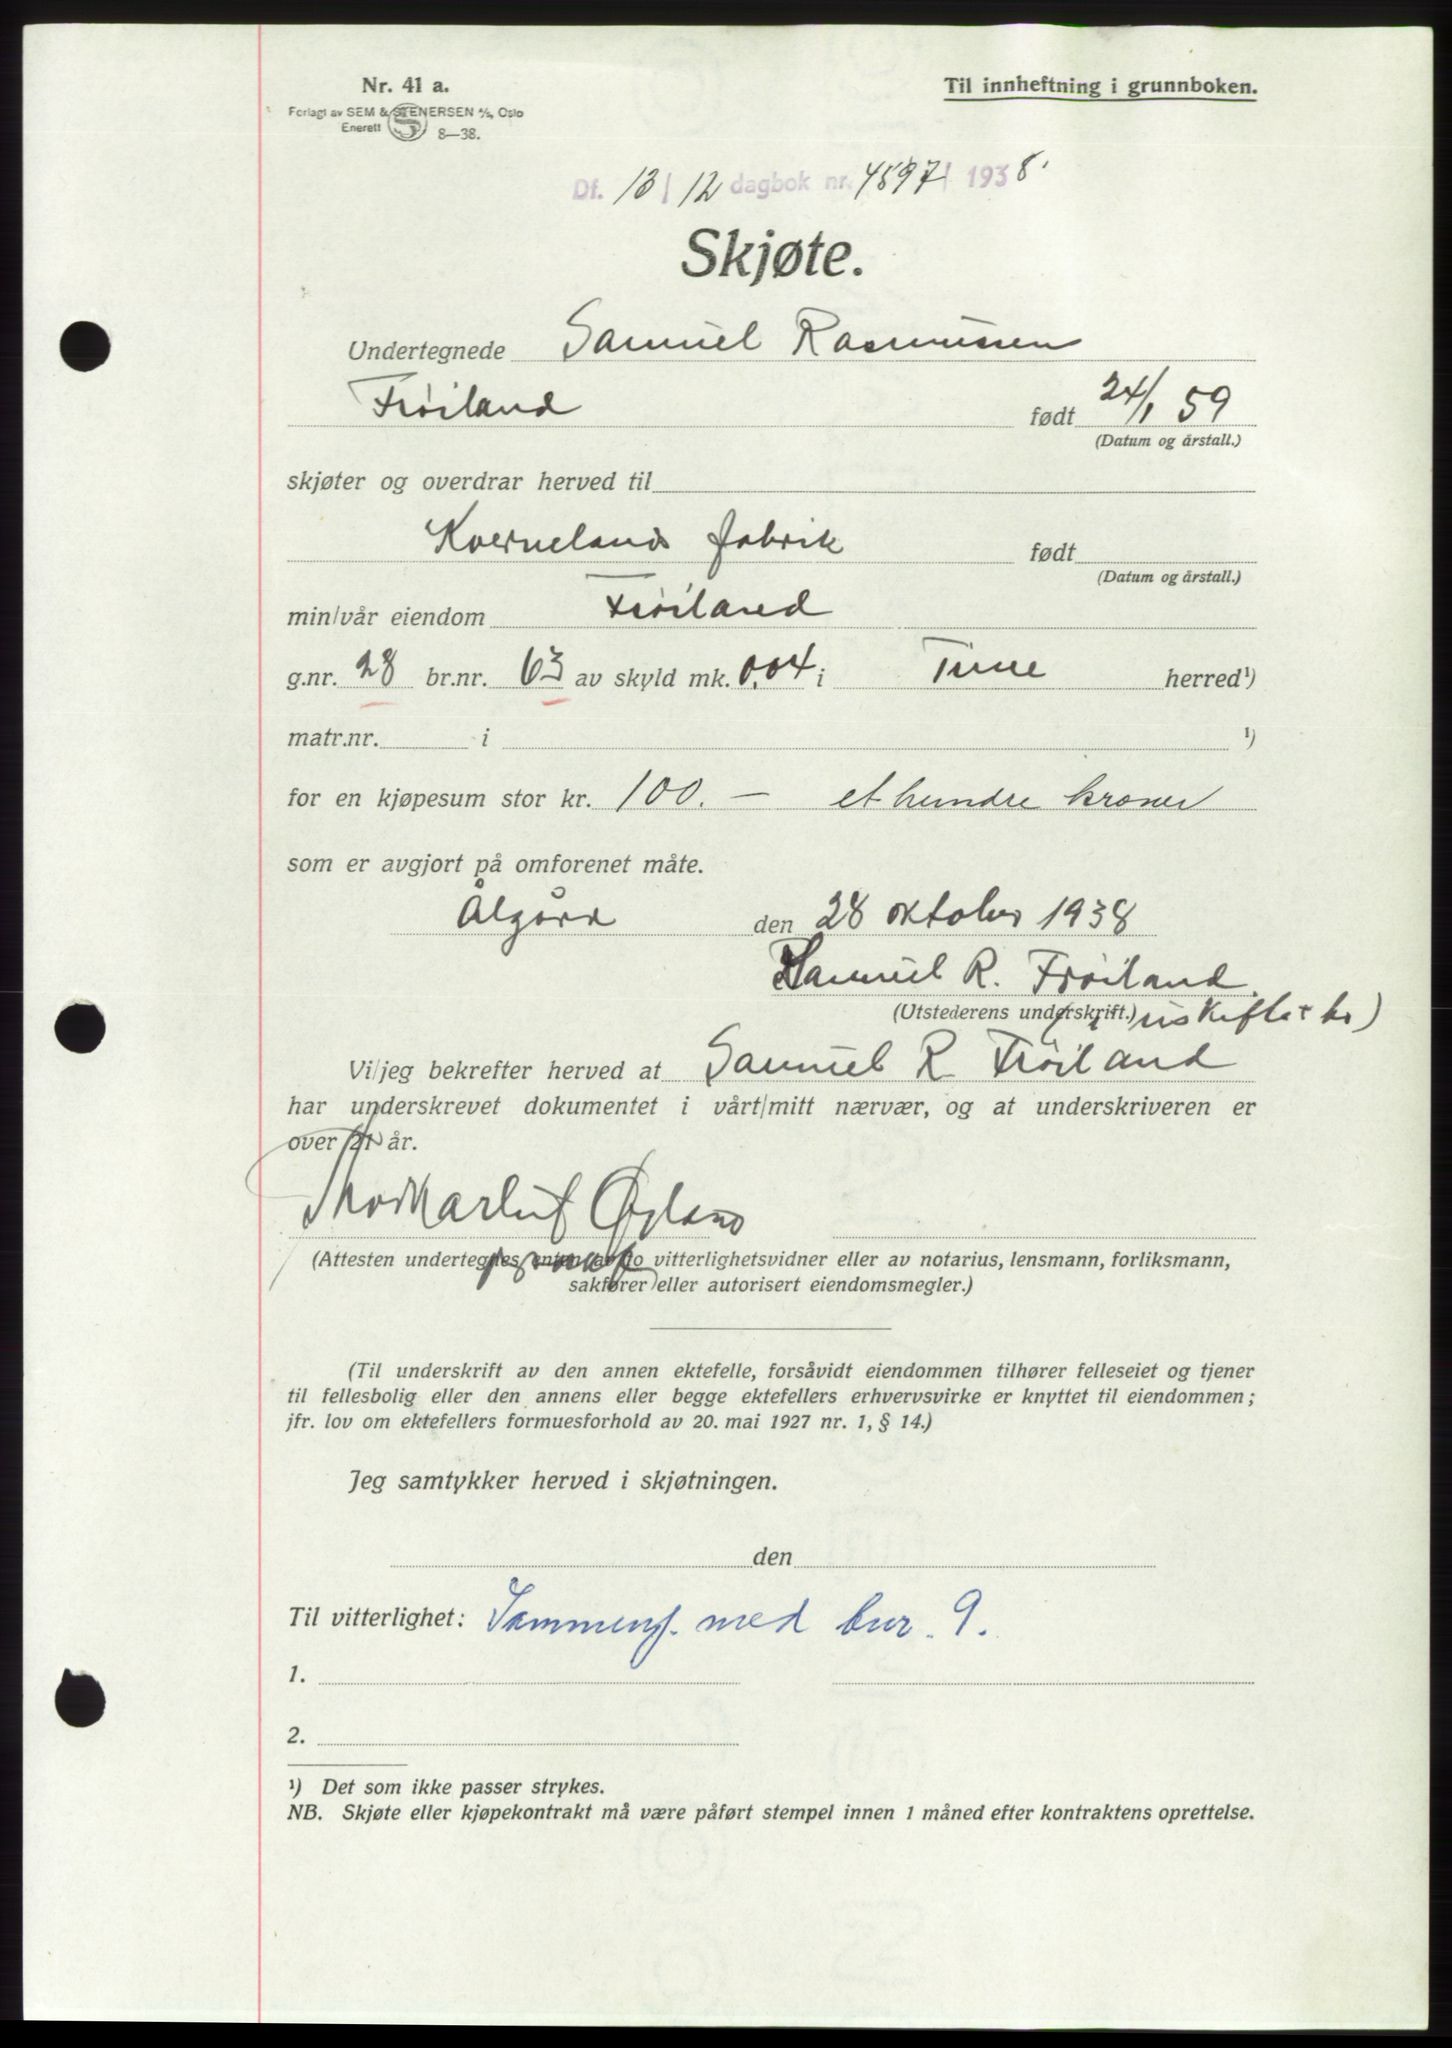 Nr. 41 a.
Til innheftning i grunnboken.
Forlagt av SEM & STENERSEN A/S, Oslo
Enerett 8—38.
Df. 13 / 12 dagbok nr. 4897 / 1938.
Skjøte.
Undertegnede Samuel Rasmussen
Frøiland født 24/1 59
(Datum og årstall.)
skjøter og overdrar herved til
Kvernelands fabrik født
(Datum og årstall.)
min/vår eiendom Frøiland
g.nr. 28 br.nr. 63 av skyld mk. 0,04 i Time herred¹)
matr.nr. i ¹)
for en kjøpesum stor kr. 100. — et hundre kroner
som er avgjort på omforenet måte.
Ålgård den 28 oktober 1938
Samuel R. Frøiland
(Utstederens underskrift.) i uskiftet bo)
Vi/jeg bekrefter herved at Samuel R Frøiland
har underskrevet dokumentet i vårt/mitt nærvær, og at underskriveren er
over 21 år.
Øgland
(Attesten undertegnes enten av to vitterlighetsvidner eller av notarius, lensmann, forliksmann,
sakfører eller autorisert eiendomsmegler.)
(Til underskrift av den annen ektefelle, forsåvidt eiendommen tilhører felleseiet og tjener
til fellesbolig eller den annens eller begge ektefellers erhvervsvirke er knyttet til eiendommen;
jfr. lov om ektefellers formuesforhold av 20. mai 1927 nr. 1, § 14.)
Jeg samtykker herved i skjøtningen.
den
Til vitterlighet: Sammenf. med bnr. 9.
1.
2.
¹) Det som ikke passer strykes.
NB. Skjøte eller kjøpekontrakt må være påført stempel innen 1 måned efter kontraktens oprettelse.